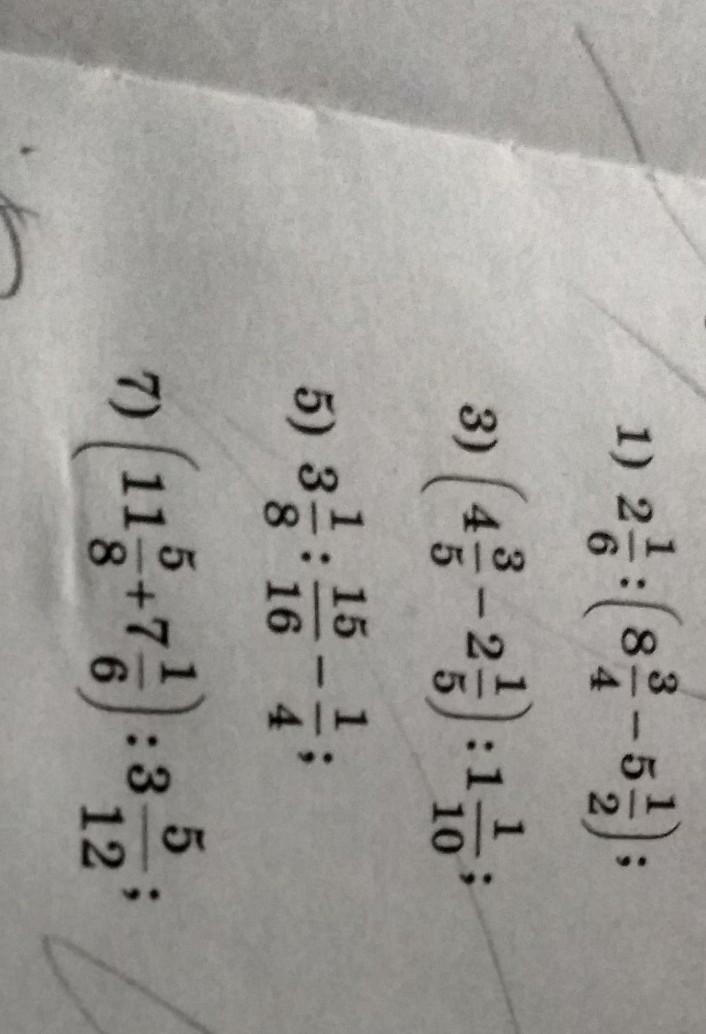 1) 2 1/6 : (8 3/4 − 5 1/2);
3) (4 3/5 − 2 1/5) : 1 1/10;
5) 3 1/8 : 15/16 − 1/4;
7) (11 5/8 + 7 1/6) : 3 5/12;